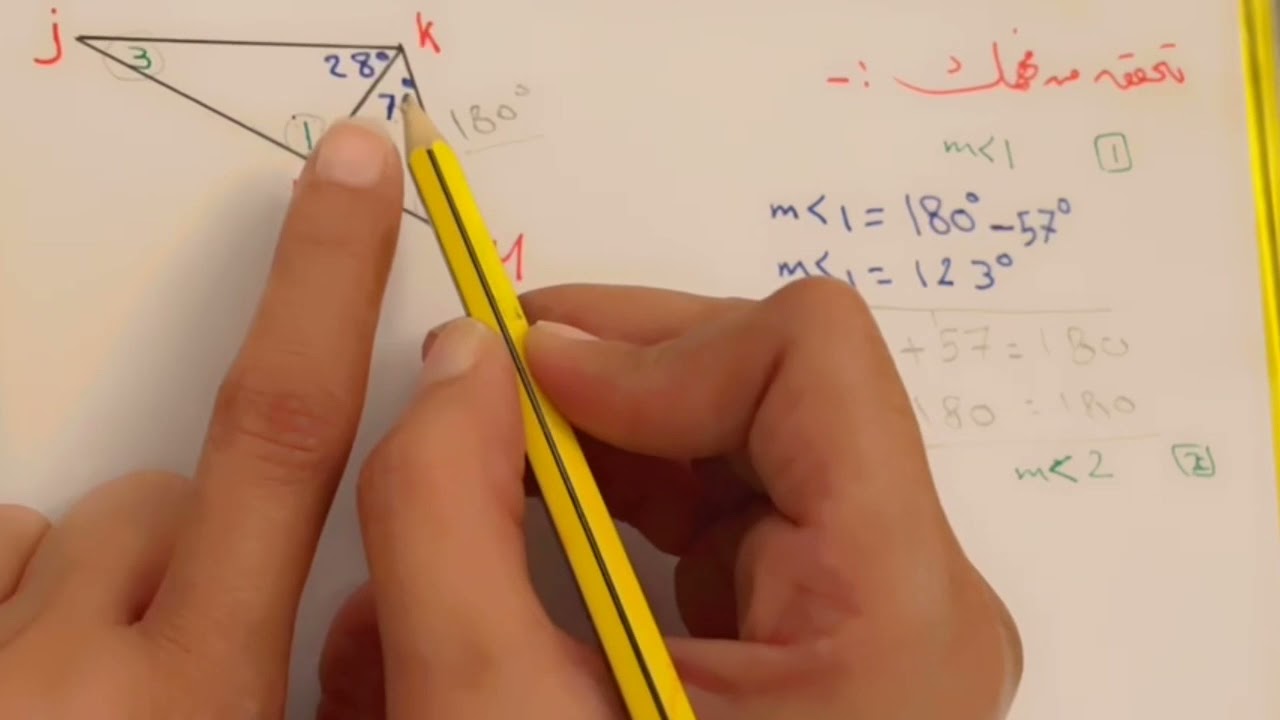 j
k
3
28°
7°
1
180°
تحقق من فهمك :-
m<1 1
m<1 = 180° - 57°
m<1 = 123°
+ 57 = 180
180 = 180
m<2 2